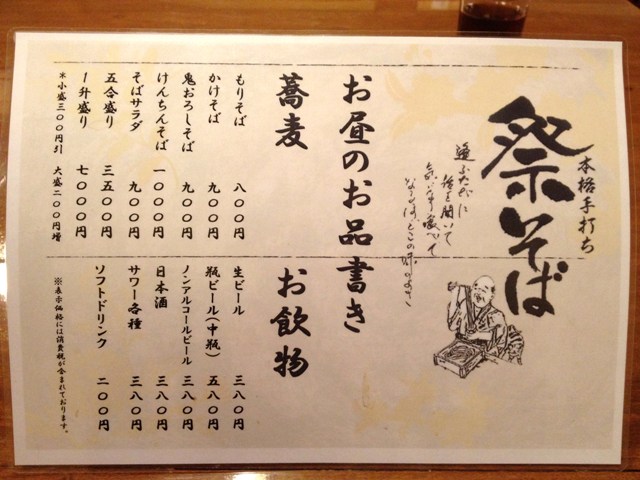 本格手打ち
祭そば
お昼のお品書き
蕎麦
もりそば 八〇〇円
かけそば 九〇〇円
鬼おろしそば 九〇〇円
けんちんそば 一〇〇〇円
そばサラダ 九〇〇円
五合盛り 三五〇〇円
一升盛り 七〇〇〇円
＊小盛三〇〇円引 大盛二〇〇円増
お飲物
生ビール 三八〇円
瓶ビール(中瓶) 五八〇円
ノンアルコールビール 三八〇円
日本酒 三八〇円
サワー各種 三八〇円
ソフトドリンク 二〇〇円
※表示価格には消費税が含まれております。